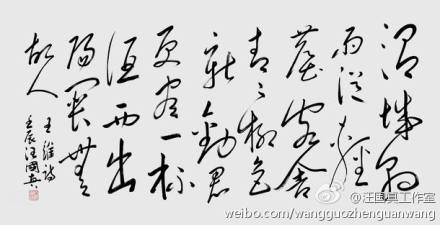 渭城朝
雨浥輕
塵客舍
青々柳色
新勸君
更盡一杯
酒西出
陽關無
故人
王維詩
壬辰汪國真
@汪国真工作室
weibo.com/wangguozhenguanwang